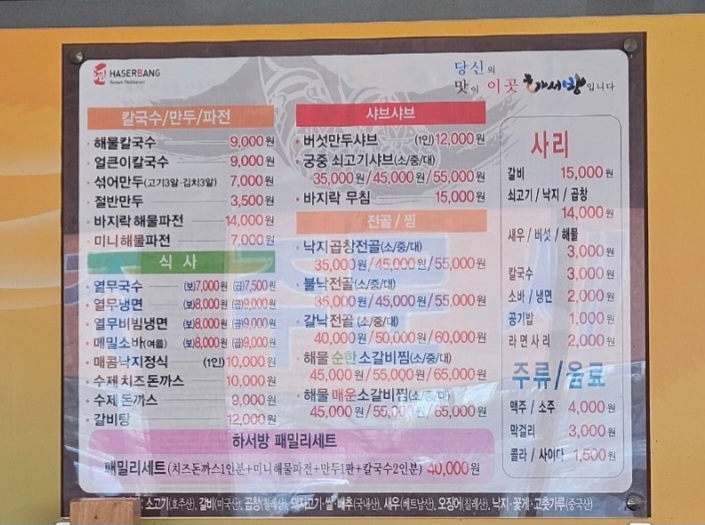 HASERBANG
Korean Restaurant
당신의
맛이 이곳 하서방입니다
칼국수/만두/파전
해물칼국수 9,000원
얼큰이칼국수 9,000원
섞어만두(고기3알·김치3알) 7,000원
절반만두 3,500원
바지락해물파전 14,000원
미니해물파전 7,000원
식 사
열무국수 (보)7,000원 (곱)7,500원
열무냉면 (보)8,000원 (곱)9,000원
열무비빔냉면 (보)8,000원 (곱)9,000원
메밀소바(여름) (보)8,000원 (곱)9,000원
매콤낙지정식 (1인)10,000원
수제치즈돈까스 10,000원
수제돈까스 9,000원
갈비탕 12,000원
샤브샤브
버섯만두샤브 (1인)12,000원
궁중 쇠고기샤브(소/중/대)
35,000원/45,000원/55,000원
바지락 무침 15,000원
전골/찜
낙지곱창전골(소/중/대)
35,000원/45,000원/55,000원
불낙전골(소/중/대)
35,000원/45,000원/55,000원
갈낙전골(소/중/대)
40,000원/50,000원/60,000원
해물 순한 소갈비찜(소/중/대)
45,000원/55,000원/65,000원
해물 매운소갈비찜(소/중/대)
45,000원/55,000원/65,000원
사리
갈비 15,000원
쇠고기/낙지/곱창
14,000원
새우/버섯/해물
3,000원
칼국수 3,000원
소바/냉면 2,000원
공기밥 1,000원
라면사리 2,000원
주류/음료
맥주/소주 4,000원
막걸리 3,000원
콜라/사이다 1,500원
하서방 패밀리세트
패밀리세트(치즈돈까스1인분+미니해물파전+만두1판+칼국수2인분) 40,000원
소고기(호주산), 갈비(미국산), 곱창(칠레산), 돼지고기·쌀·배추(국내산), 새우(베트남산), 오징어(칠레산), 낙지·꽃게·고춧가루(중국산)